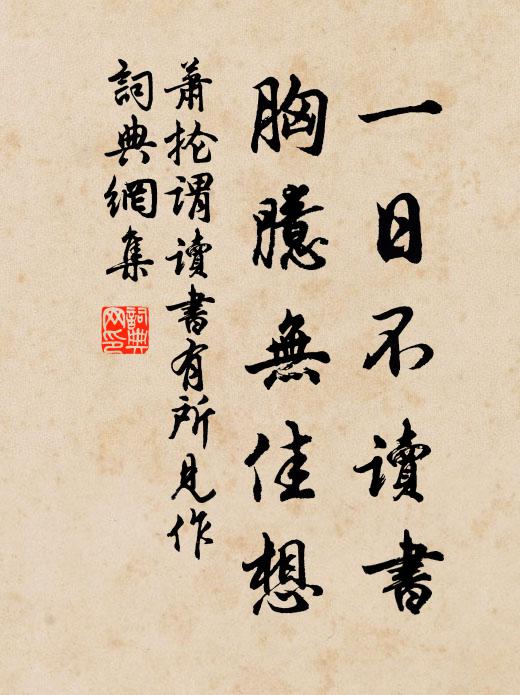 一日不讀書
胸臆無佳想
蕭掄謂讀書有所見作
詞典網集
詞典网印